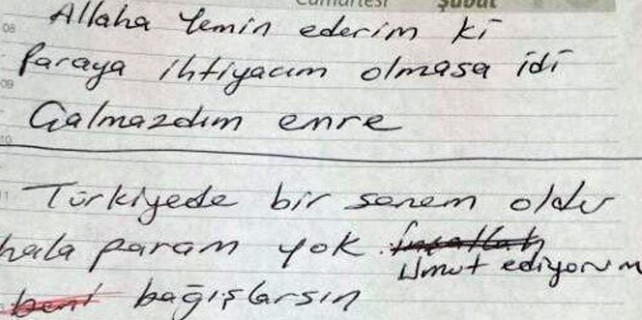 Cumartesi Şubat
08 Allaha Yemin ederim ki
Paraya ihtiyacım olmasa idi
09
Çalmazdım emre
10
11 Türkiyede bir senem oldu
hala param yok. İnşallah
Umut ediyorum
beni bağışlarsın